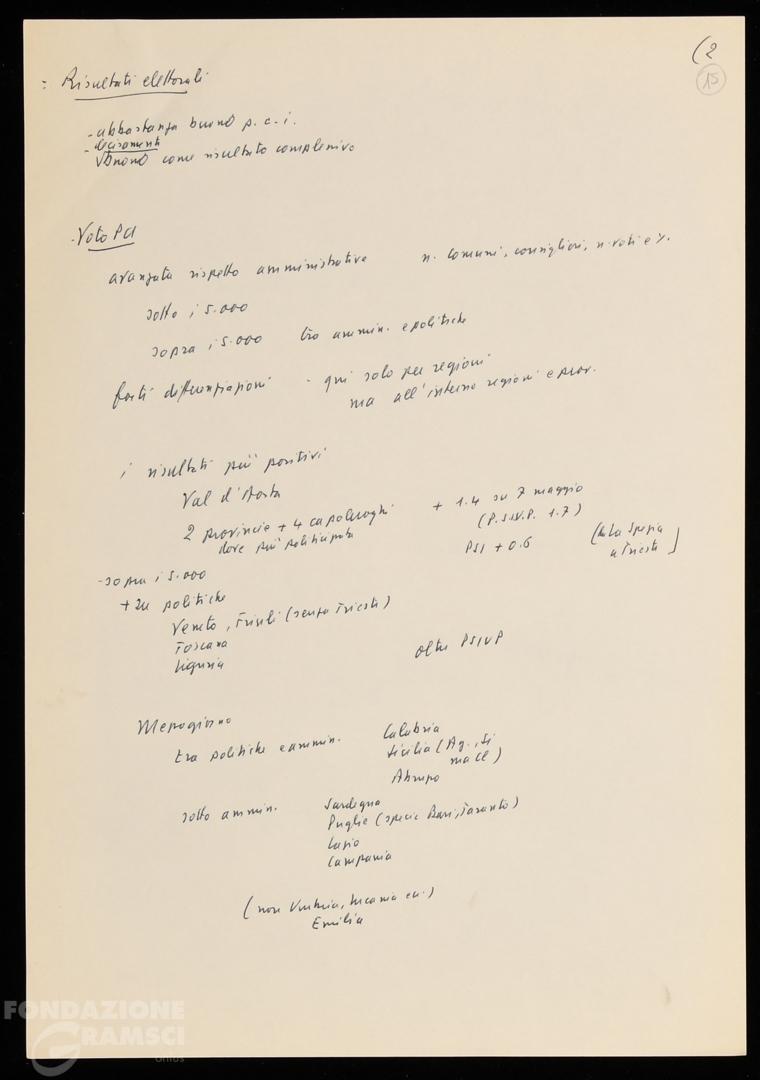 (2
15
: Risultati elettorali
- abbastanza buono p.c.i.
- decisamente
buono come risultato complessivo
- Voto PCI
avanzata rispetto amministrative n. comuni, consiglieri, n. voti e %.
sotto i 5.000
sopra i 5.000 tra ammin. e politiche
forti differenziazioni - qui solo per regioni
ma all'interno regioni e prov.
i risultati più positivi
Val d'Aosta
2 provincie + 4 capoluoghi + 1.4 su 7 maggio
(P.S.I.U.P. 1.7)
dove più politicizzata PSI + 0.6 (La Spezia
a Trieste)
- sopra i 5.000
+ su politiche
Veneto, Friuli (senza Trieste)
Toscana
Liguria oltre PSIUP
Mezzogiorno
tra politiche e ammin. Calabria
Sicilia (Ag., Si
ma Cl)
Abruzzo
sotto ammin. Sardegna
Puglie (specie Bari, Taranto)
Lazio
Campania
(non Umbria, Lucania ecc.)
Emilia
FONDAZIONE
GRAMSCI
onlus